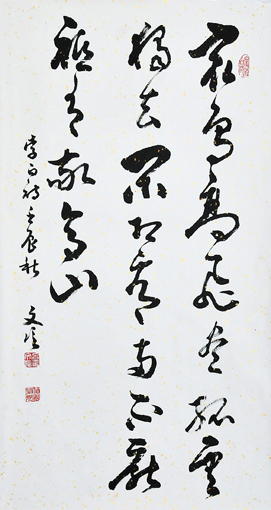 衆鳥高飛盡孤雲
獨去閑相看兩不厭
祗有敬亭山
李白詩壬辰秋 文